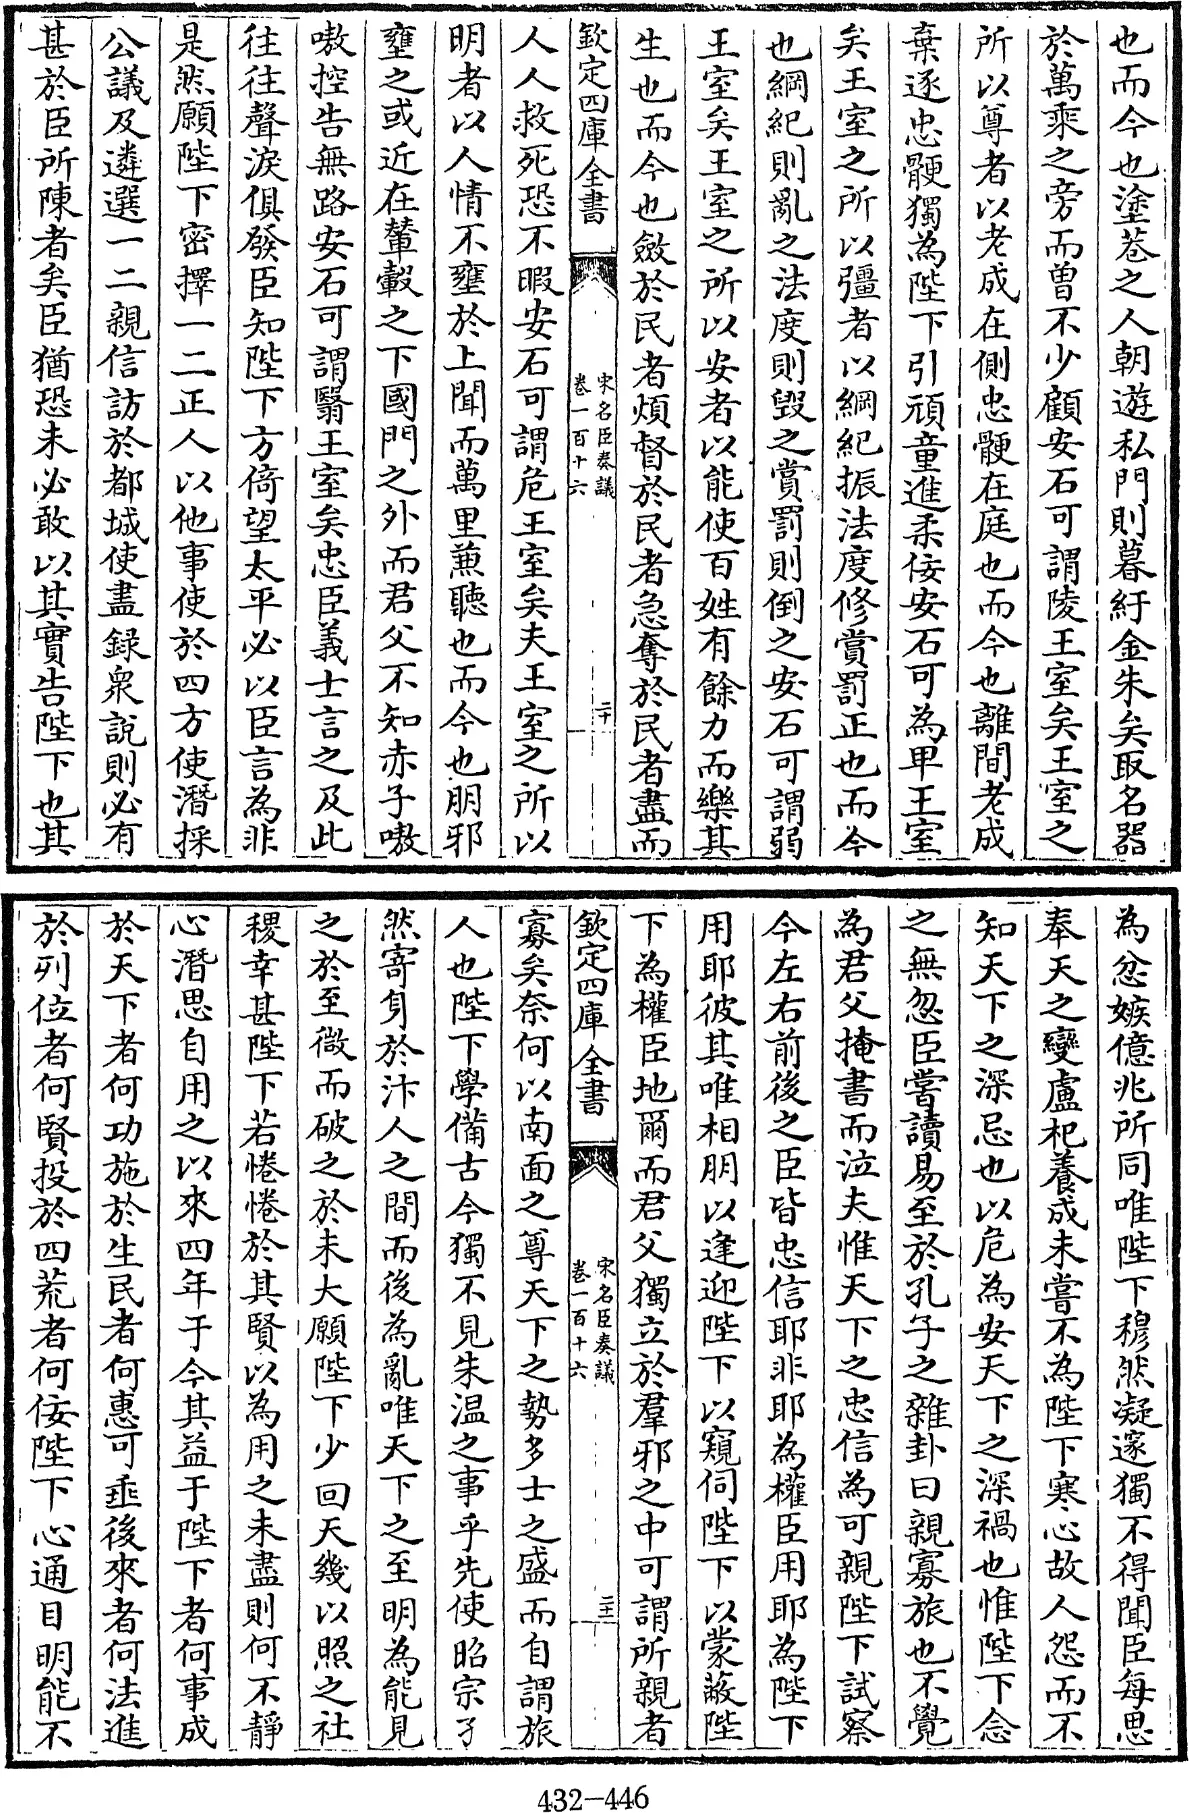 也而今也塗巷之人朝遊私門則暮紆金朱矣取名器
於萬乘之旁而曾不少顧安石可謂陵王室矣王室之
所以尊者以老成在側忠骾在庭也而今也離間老成
棄逐忠骾獨為陛下引頑童進柔佞安石可為卑王室
矣王室之所以彊者以綱紀振法度修賞罰正也而今
也綱紀則亂之法度則毀之賞罰則倒之安石可謂弱
王室矣王室之所以安者以能使百姓有餘力而樂其
生也而今也斂於民者煩督於民者急奪於民者盡而
欽定四庫全書
宋名臣奏議
卷一百十六
二十
人人救死恐不暇安石可謂危王室矣夫王室之所以
明者以人情不壅於上聞而萬里兼聽也而今也朋邪
壅之或近在輦轂之下國門之外而君父不知赤子嗷
嗷控告無路安石可謂翳王室矣忠臣義士言之及此
往往聲淚俱發臣知陛下方倚望太平必以臣言為非
是然願陛下密擇一二正人以他事使於四方使潛採
公議及遴選一二親信訪於都城使盡錄衆說則必有
甚於臣所陳者矣臣猶恐未必敢以其實告陛下也其
為忿嫉億兆所同唯陛下穆然凝邃獨不得聞臣每思
奉天之變盧杞養成未嘗不為陛下寒心故人怨而不
知天下之深忌也以危為安天下之深禍也惟陛下念
之無忽臣嘗讀易至於孔子之雜卦曰親寡旅也不覺
為君父掩書而泣夫惟天下之忠信為可親陛下試察
今左右前後之臣皆忠信耶非耶為權臣用耶為陛下
用耶彼其唯相朋以逢迎陛下以窺伺陛下以蒙蔽陛
下為權臣地爾而君父獨立於羣邪之中可謂所親者
欽定四庫全書
宋名臣奏議
卷一百十六
二十一
寡矣奈何以南面之尊天下之勢多士之盛而自謂旅
人也陛下學備古今獨不見朱温之事乎先使昭宗孑
然寄身於汴人之間而後為亂唯天下之至明為能見
之於至微而破之於未大願陛下少回天幾以照之社
稷幸甚陛下若惓惓於其賢以為用之未盡則何不靜
心潛思自用之以來四年于今其益于陛下者何事成
於天下者何功施於生民者何惠可垂後來者何法進
於列位者何賢投於四荒者何佞陛下心通目明能不
432-446